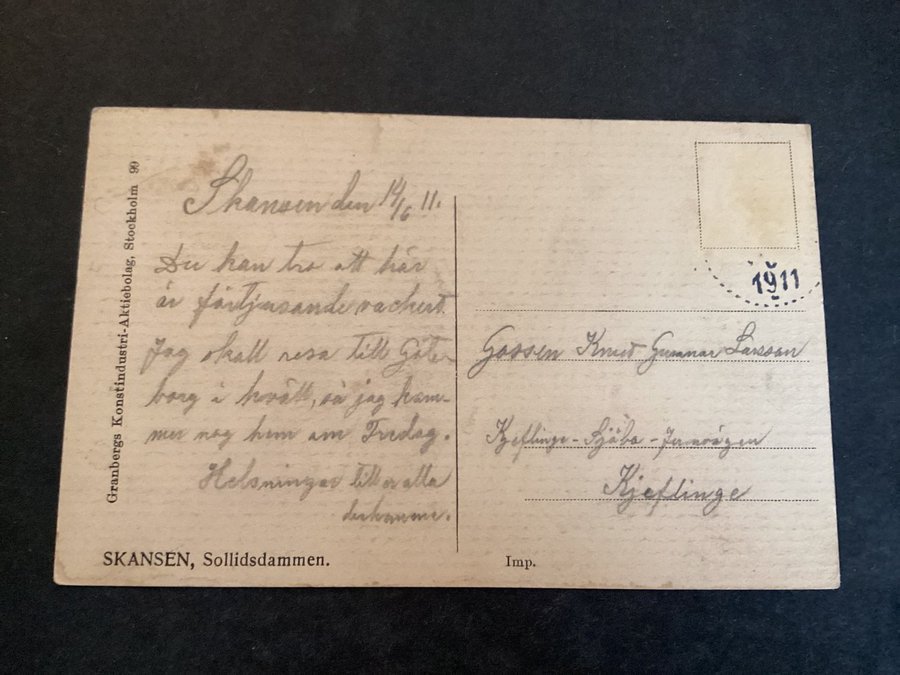 Granbergs Konstindustri-Aktiebolag, Stockholm 99
Skansen den 14/6 11.
Du kan tro att här
är förtjusande vackert.
Jag skall resa till Göte-
borg i kväll, så jag kom-
mer nog hem om Fredag.
Helsningar till er alla
derhemma.
SKANSEN, Sollidsdammen.
1911
Gossen Knut Gunnar Larsson
Kjeflinge-Sjöbo-Jernvägen
Kjeflinge
Imp.